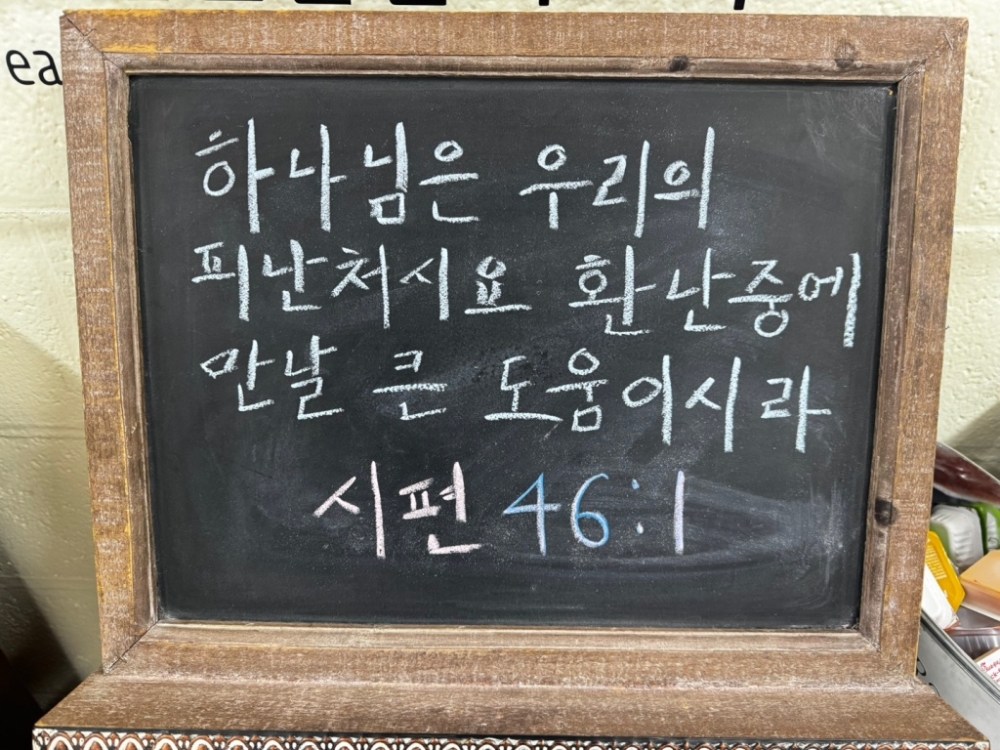 ea
하나님은 우리의
피난처시요 환난중에
만날 큰 도움이시라
시편 46:1